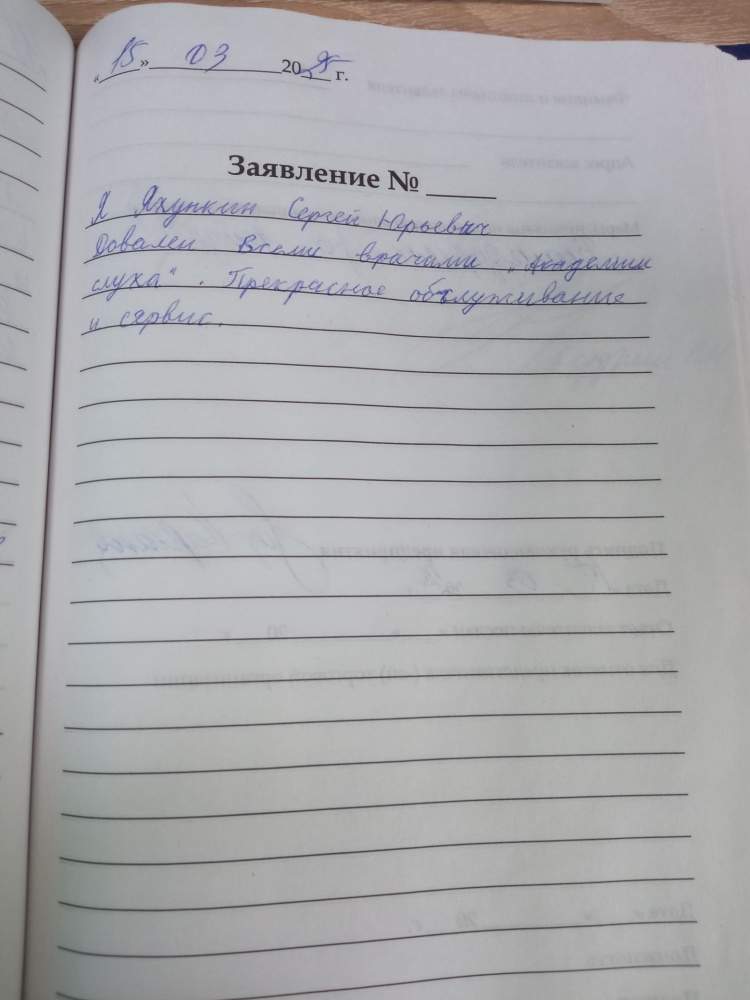 « 15 » 03 2025 г.
Заявление № ____
Я Яхункин Сергей Юрьевич
Довален всеми врачами „Академии
слуха“. Прекрасное обслуживание
и сервис.